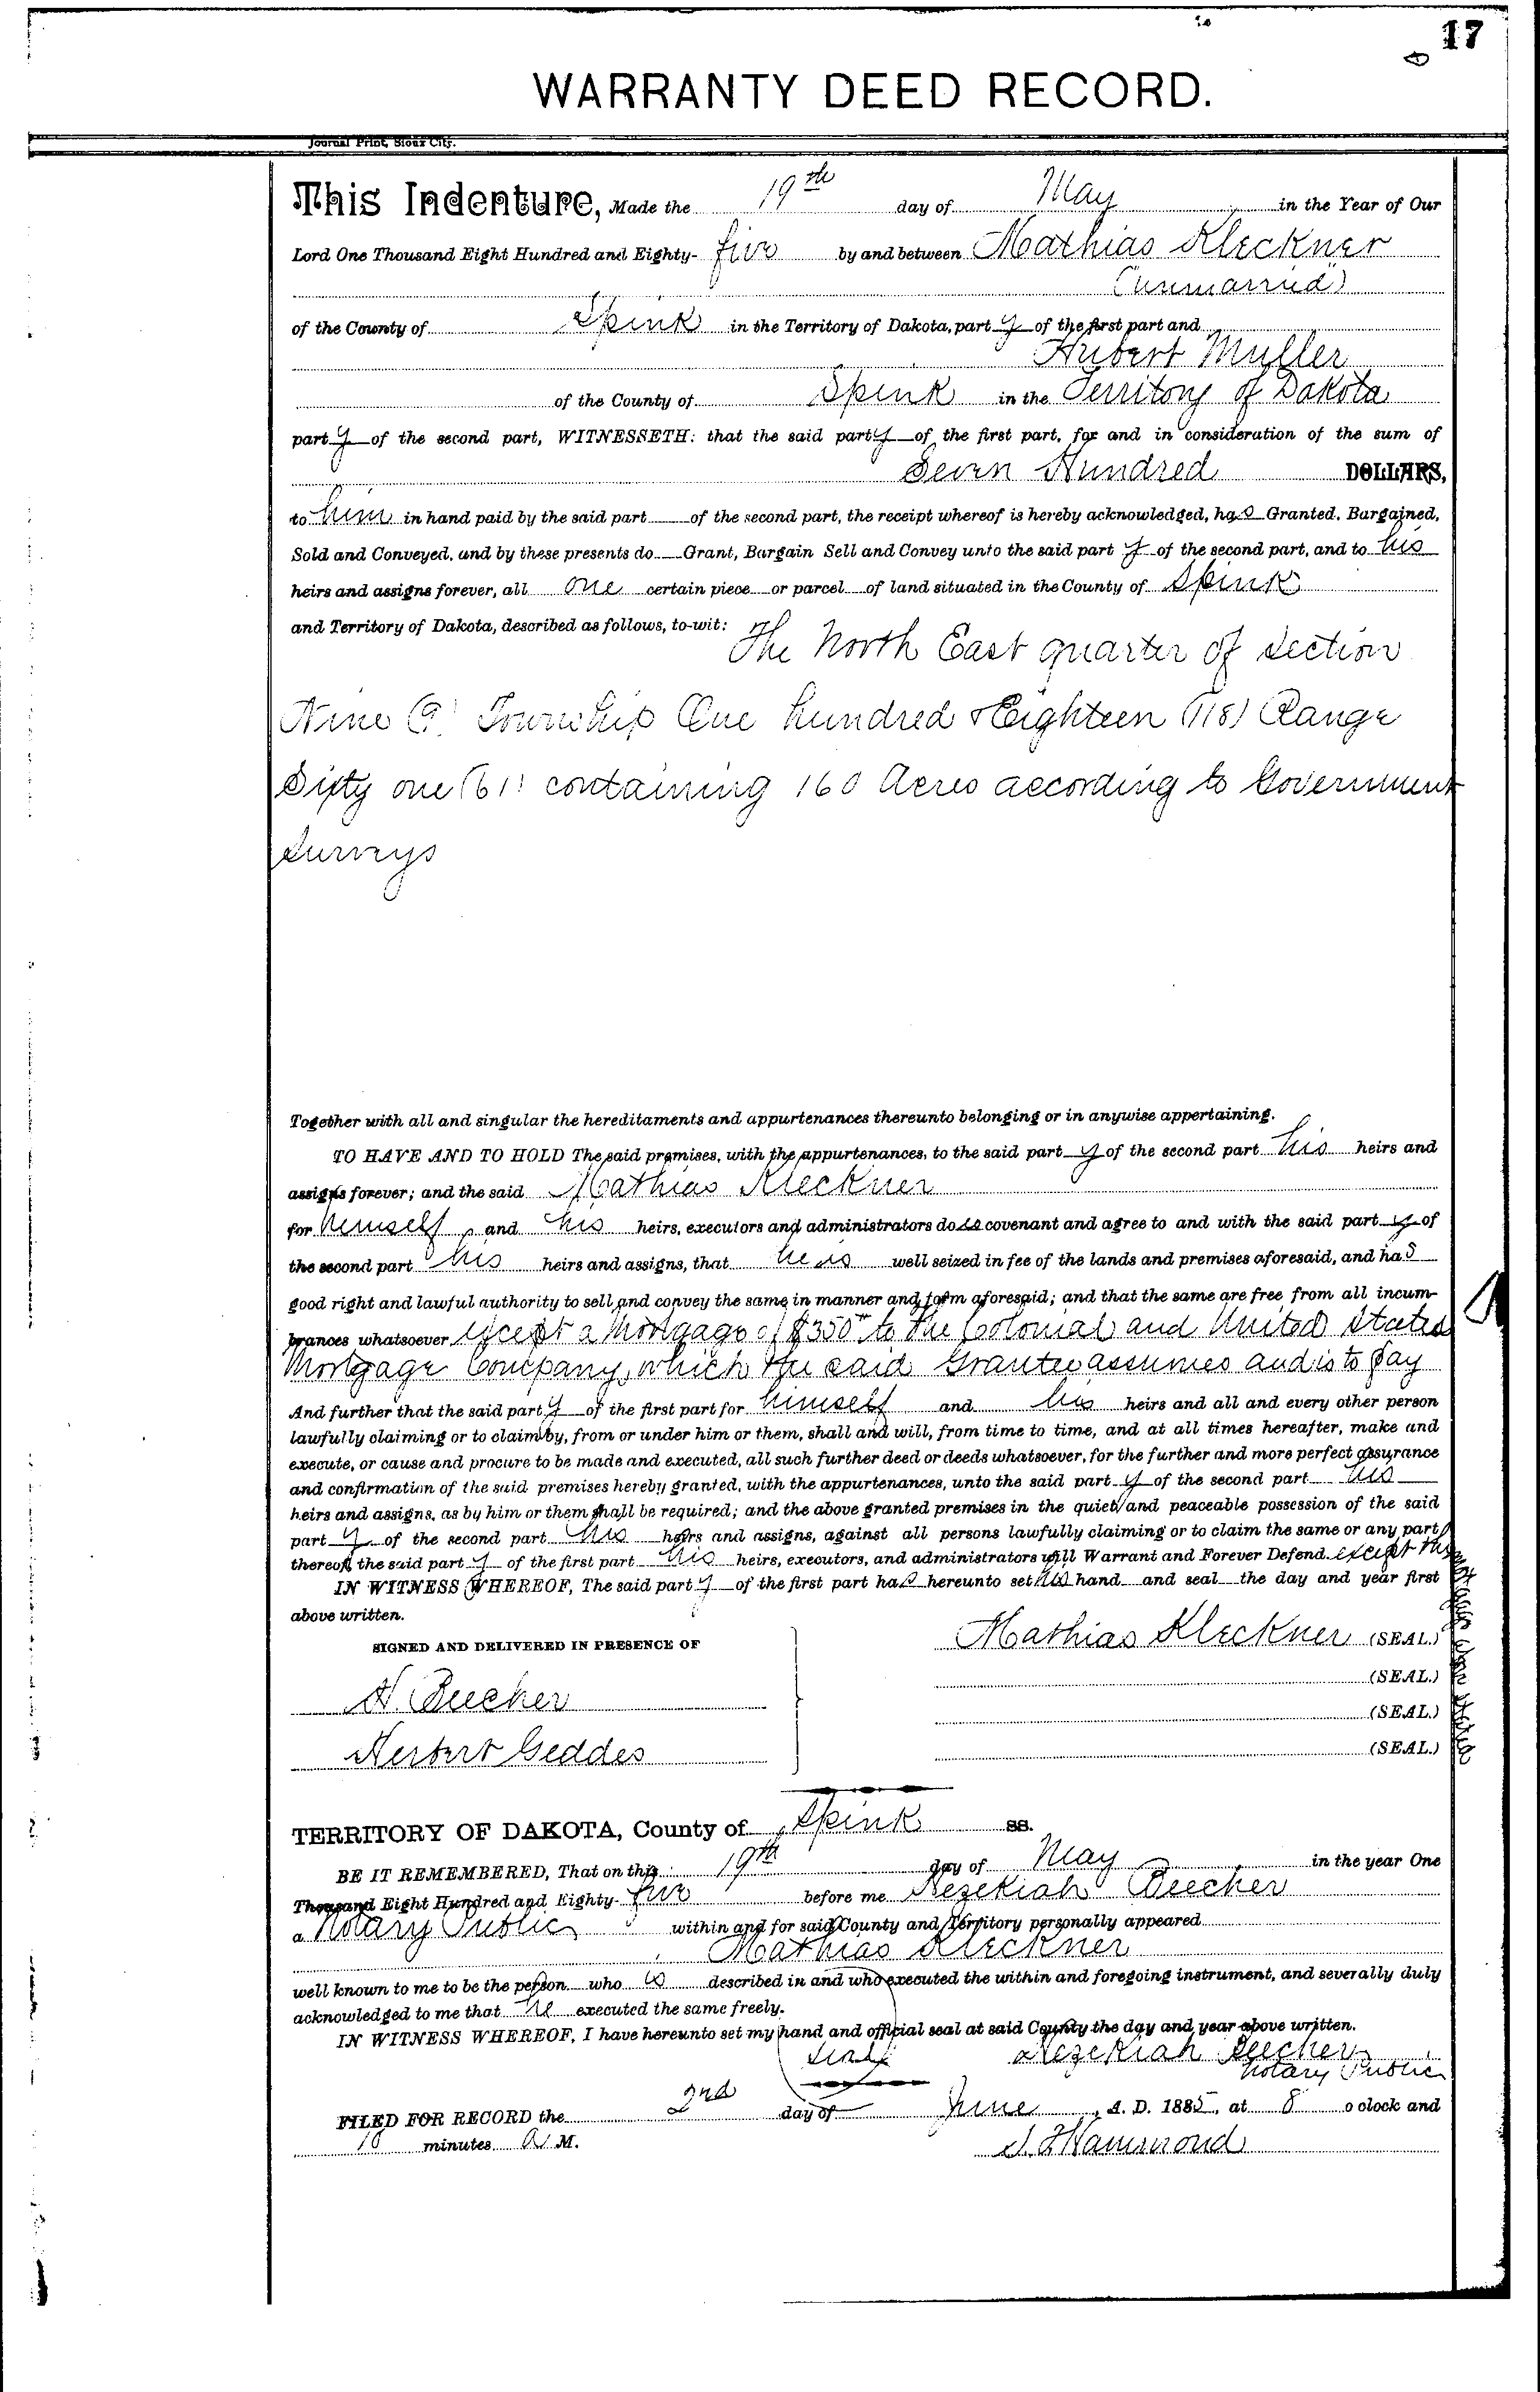 17
WARRANTY DEED RECORD.
Journal Print, Sioux City.
This Indenture, Made the 19th day of May in the Year of Our
Lord One Thousand Eight Hundred and Eighty-five by and between Mathias Kleckner
(unmarried)
of the County of Spink in the Territory of Dakota, part y of the first part and
Hubert Muller
of the County of Spink in the Territory of Dakota
part y of the second part, WITNESSETH: that the said party of the first part, for and in consideration of the sum of
Seven Hundred DOLLARS,
to him in hand paid by the said part of the second part, the receipt whereof is hereby acknowledged, has Granted, Bargained,
Sold and Conveyed, and by these presents do Grant, Bargain Sell and Convey unto the said part y of the second part, and to his
heirs and assigns forever, all one certain piece or parcel of land situated in the County of Spink
and Territory of Dakota, described as follows, to-wit: The North East quarter of Section
Nine (9) Township One hundred & Eighteen (118) Range
Sixty one (61) containing 160 Acres according to Government
Surveys
Together with all and singular the hereditaments and appurtenances thereunto belonging or in anywise appertaining.
TO HAVE AND TO HOLD The said premises, with the appurtenances, to the said part y of the second part his heirs and
assigns forever; and the said Mathias Kleckner
for himself and his heirs, executors and administrators does covenant and agree to and with the said part y of
the second part his heirs and assigns, that he is well seized in fee of the lands and premises aforesaid, and has
good right and lawful authority to sell and convey the same in manner and form aforesaid; and that the same are free from all incum-
brances whatsoever except a Mortgage of $350 to the Colonial and United States
Mortgage Company, which the said Grantee assumes and is to pay
And further that the said part y of the first part for himself and his heirs and all and every other person
lawfully claiming or to claim by, from or under him or them, shall and will, from time to time, and at all times hereafter, make and
execute, or cause and procure to be made and executed, all such further deed or deeds whatsoever, for the further and more perfect assurance
and confirmation of the said premises hereby granted, with the appurtenances, unto the said part y of the second part his
heirs and assigns, as by him or them shall be required; and the above granted premises in the quiet and peaceable possession of the said
part y of the second part his heirs and assigns, against all persons lawfully claiming or to claim the same or any part
thereof, the said part y of the first part his heirs, executors, and administrators will Warrant and Forever Defend. except the
IN WITNESS WHEREOF, The said part y of the first part has hereunto set his hand and seal the day and year first
above written.
SIGNED AND DELIVERED IN PRESENCE OF
Mathias Kleckner (SEAL.)
(SEAL.)
H. Beecher
(SEAL.)
Herbert Geddes
(SEAL.)
TERRITORY OF DAKOTA, County of Spink ss.
BE IT REMEMBERED, That on this 19th day of May in the year One
Thousand Eight Hundred and Eighty-five before me Hezekiah Beecher
a Notary Public within and for said County and Territory personally appeared
Mathias Kleckner
well known to me to be the person who is described in and who executed the within and foregoing instrument, and severally duly
acknowledged to me that he executed the same freely.
IN WITNESS WHEREOF, I have hereunto set my hand and official seal at said County the day and year above written.
Seal
Hezekiah Beecher
Notary Public
FILED FOR RECORD the 2nd day of June, A. D. 1885, at 8 o clock and
10 minutes A. M.
Hammond